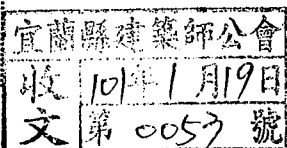 宜蘭縣建築師公會
收文
101年1月19日
第 0053 號